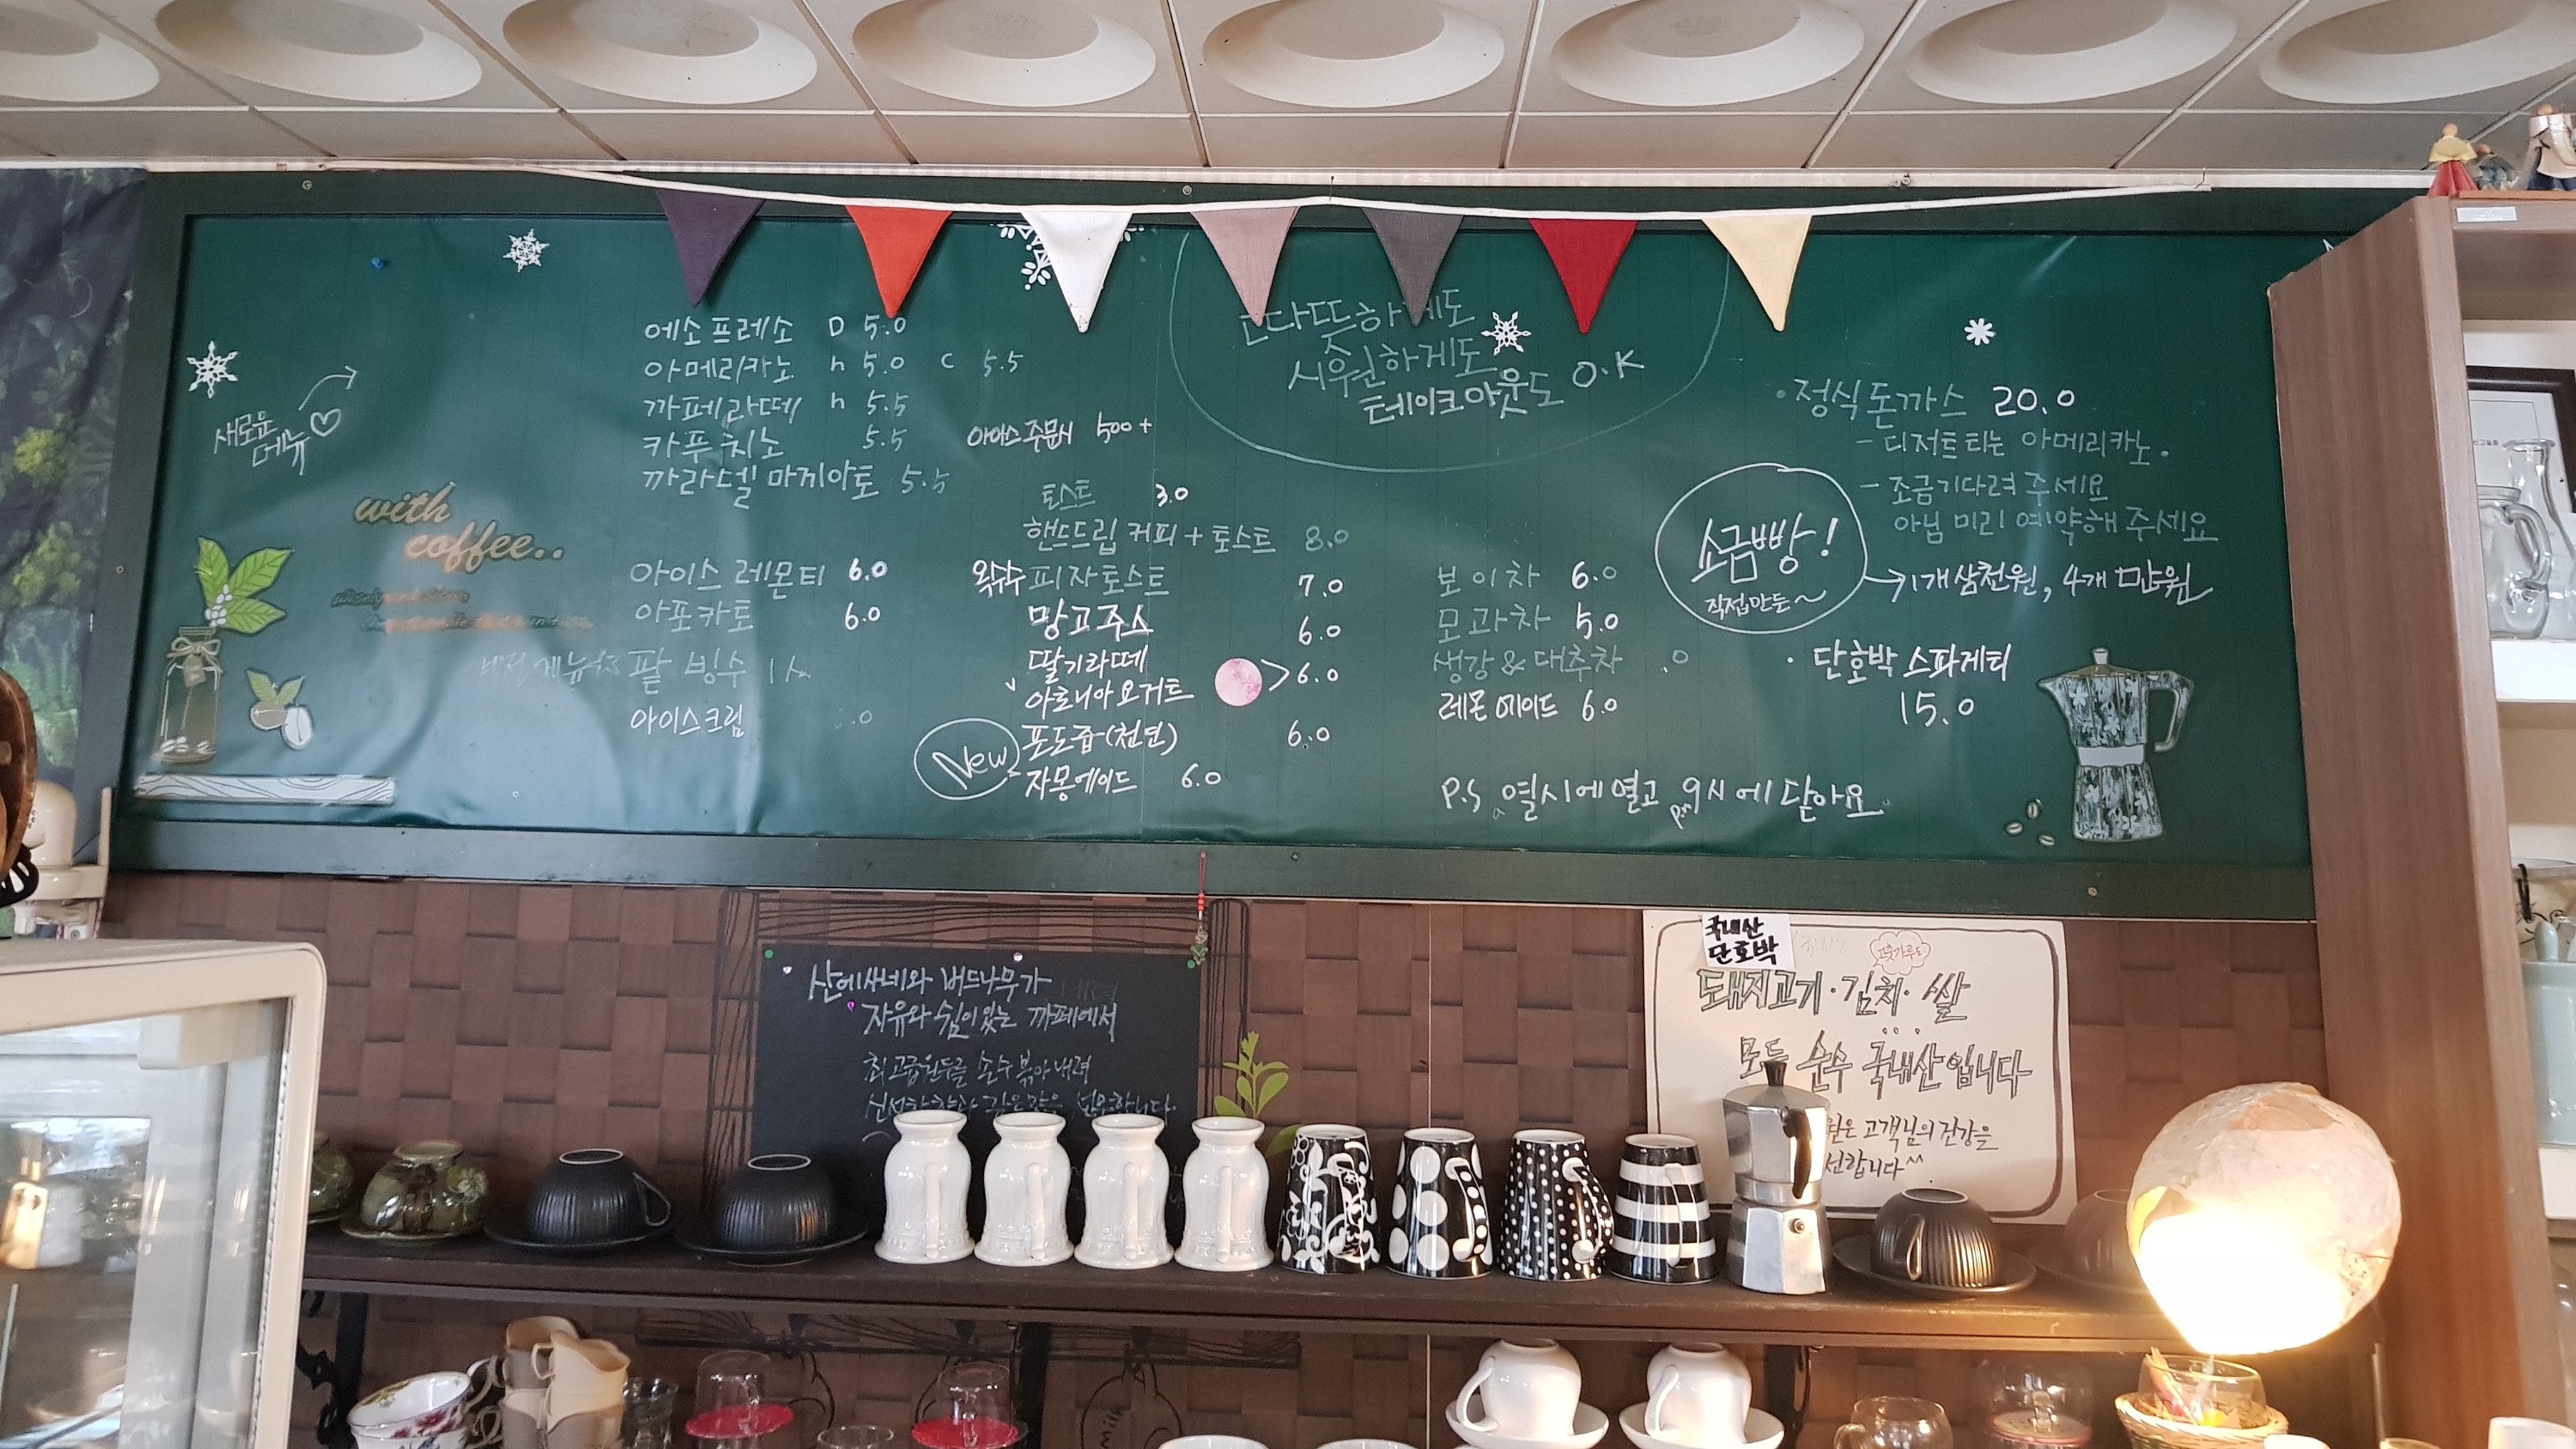 새로운
메뉴
with
coffee..
에소프레소 D 5.0
아메리카노 h 5.0 C 5.5
까페라떼 h 5.5
카푸치노 5.5
까라멜마끼아토 5.5
아이스 주문시 500+
아이스 레몬티 6.0
아포카토 6.0
메뉴 팥 빙수
아이스크림 .0
토스트 3.0
핸드드립 커피 + 토스트 8.0
옥수수 피자토스트 7.0
망고쥬스 6.0
딸기라떼
아로니아요거트 >6.0
New
포도즙(천연) 6.0
자몽에이드 6.0
따뜻하게도
시원하게도
테이크아웃도 O.K
보이차 6.0
모과차 5.0
생강 & 대추차 .0
레몬에이드 6.0
·정식돈까스 20.0
- 디저트티는 아메리카노.
- 조금기다려 주세요
아님 미리 예약해 주세요
소금빵!
직접만든~
→1개 삼천원, 4개 만원
· 단호박 스파게티
15.0
P.S 열시에 열고 9시에 닫아요.
산에사네와 버드나무가
자유와 쉼이 있는 까페에서
최고급원두를 손수 볶아내려
국내산
단호박
고춧가루도
돼지고기·김치·쌀
모두 순수 국내산입니다
고객님의 건강을